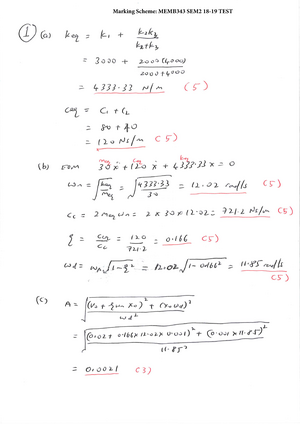 Marking Scheme: MEMB343 SEM2 18-19 TEST
① (a) keq = k1 + k2k3 / k2+k3
= 3000 + 2000(4000) / 2000+4000
= 4333.33 N/m (5)
ceq = c1 + c2
= 80 + 40
= 120 Ns/m (5)
(b) EOM meq ceq keq
30 ẍ + 120 ẋ + 4333.33 x = 0
ωn = √(keq/meq) = √(4333.33/30) = 12.02 rad/s (5)
cc = 2 meq ωn = 2 x 30 x 12.02 = 721.2 Ns/m (5)
ξ = ceq/cc = 120/721.2 = 0.166 (5)
ωd = ωn√(1-ξ²) = 12.02√(1-0.166²) = 11.85 rad/s
(5)
(c) A = √(((v0 + ξωn x0)² + (x0ωd)²) / ωd²)
= √(((0.02 + 0.166x12.02x0.001)² + (0.001x11.85)²) / 11.85²)
= 0.0021 (3)